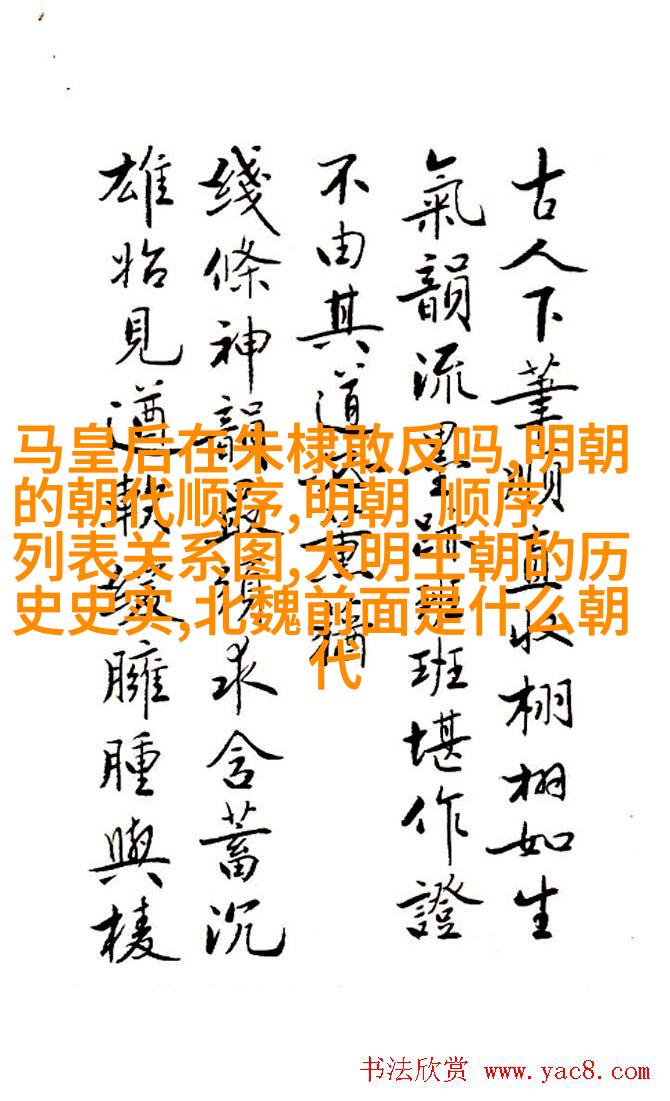 马皇后在朱棣敢反吗,明朝
的朝代顺序,明朝 顺序
列表关系图,大明王朝的历
史史实,北魏前面是什么朝
代
古人下筆栩栩如生
氣韻流班堪作證
不由其道
綫條神韻求含蓄沉
雄始見遒臃腫與棱
书法欣赏 www.yac8.com